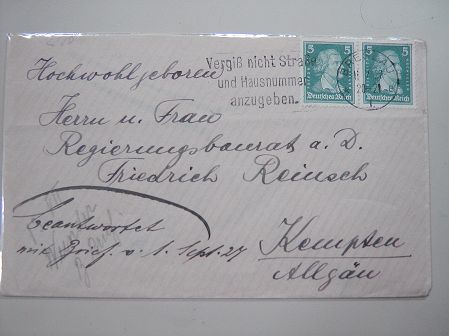 Vergiß nicht Straße
und Hausnummer
anzugeben.
5 5
Deutsches Reich
5 5
Deutsches Reich
Hochwohlgeboren
Herrn u. Frau
Regierungsbaurat a. D.
Friedrich Reinsch
Beantwortet
mit Brief v. 1. Sept. 27
Kempten
Allgäu